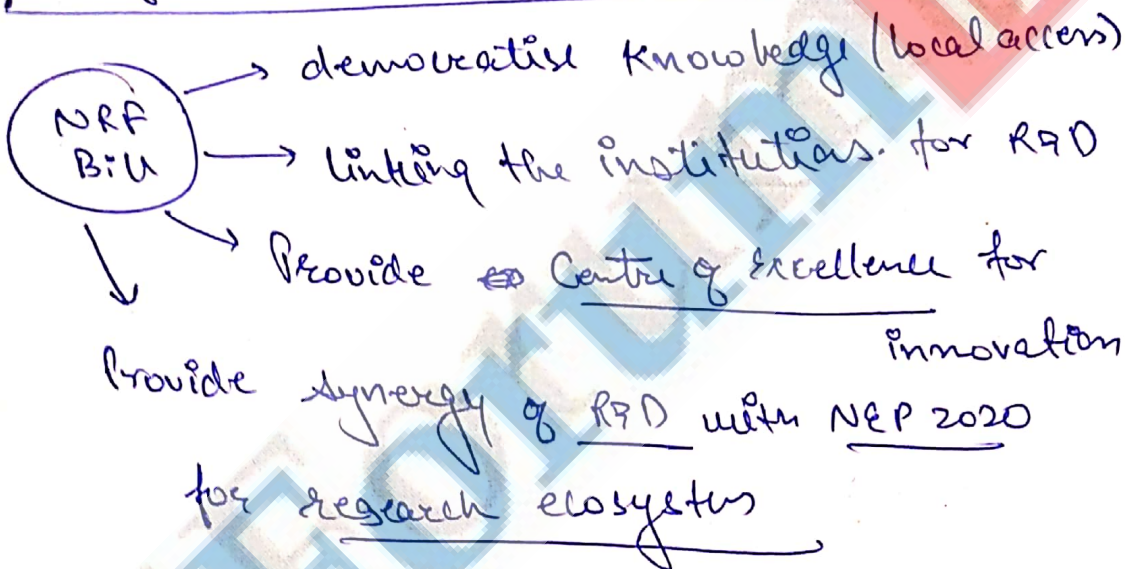 democratise knowledge (local access)
NRF
Bill
linking the institutions. for R&D
Provide Centre of Excellence for
innovation
Provide synergy of R&D with NEP 2020
for research ecosystem
Forum